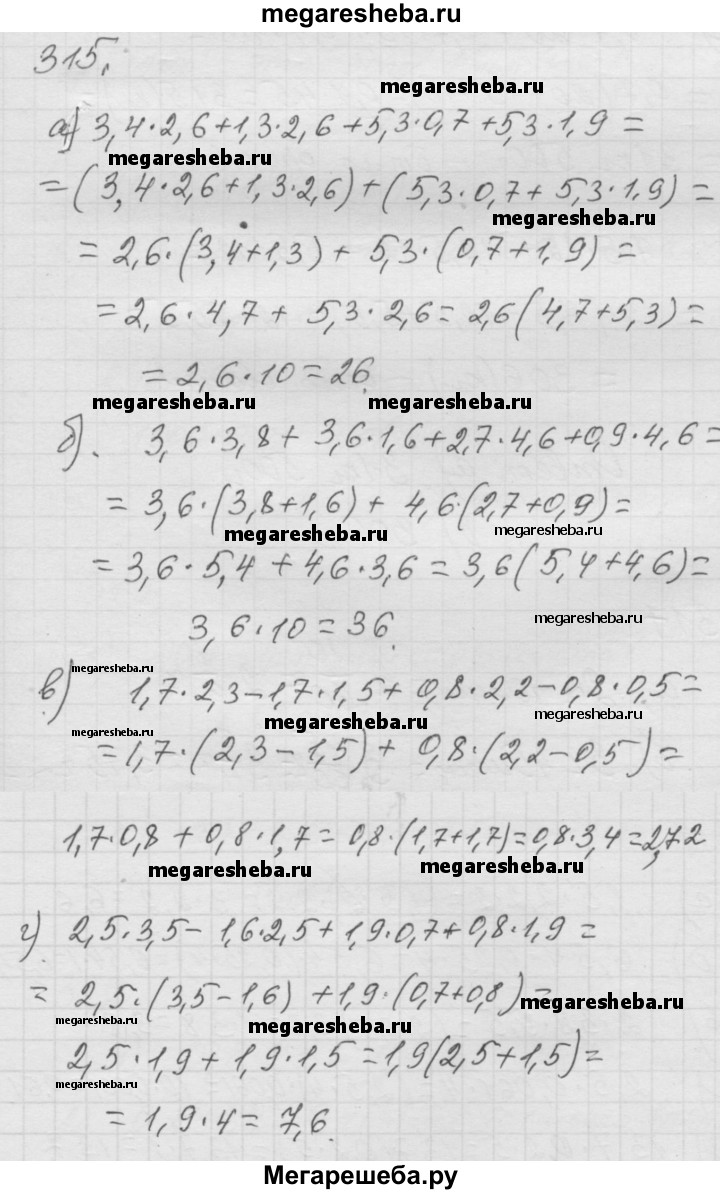 megaresheba.ru
315.
megaresheba.ru
а) 3,4·2,6+1,3·2,6+5,3·0,7+5,3·1,9=
megaresheba.ru
=(3,4·2,6+1,3·2,6)+(5,3·0,7+5,3·1,9)=
megaresheba.ru
=2,6·(3,4+1,3)+5,3·(0,7+1,9)=
=2,6·4,7+5,3·2,6=2,6(4,7+5,3)=
=2,6·10=26.
megaresheba.ru megaresheba.ru
б). 3,6·3,8+3,6·1,6+2,7·4,6+0,9·4,6=
=3,6·(3,8+1,6)+4,6·(2,7+0,9)=
megaresheba.ru megaresheba.ru
=3,6·5,4+4,6·3,6=3,6(5,4+4,6)=
3,6·10=36.
megaresheba.ru
megaresheba.ru
в) 1,7·2,3-1,7·1,5+0,8·2,2-0,8·0,5=
megaresheba.ru megaresheba.ru
=1,7·(2,3-1,5)+0,8·(2,2-0,5)=
1,7·0,8+0,8·1,7=0,8·(1,7+1,7)=0,8·3,4=2,72
megaresheba.ru megaresheba.ru
г) 2,5·3,5-1,6·2,5+1,9·0,7+0,8·1,9=
=2,5·(3,5-1,6)+1,9·(0,7+0,8)=
megaresheba.ru
megaresheba.ru megaresheba.ru
2,5·1,9+1,9·1,5=1,9(2,5+1,5)=
megaresheba.ru megaresheba.ru
=1,9·4=7,6.
Мегарешеба.ру